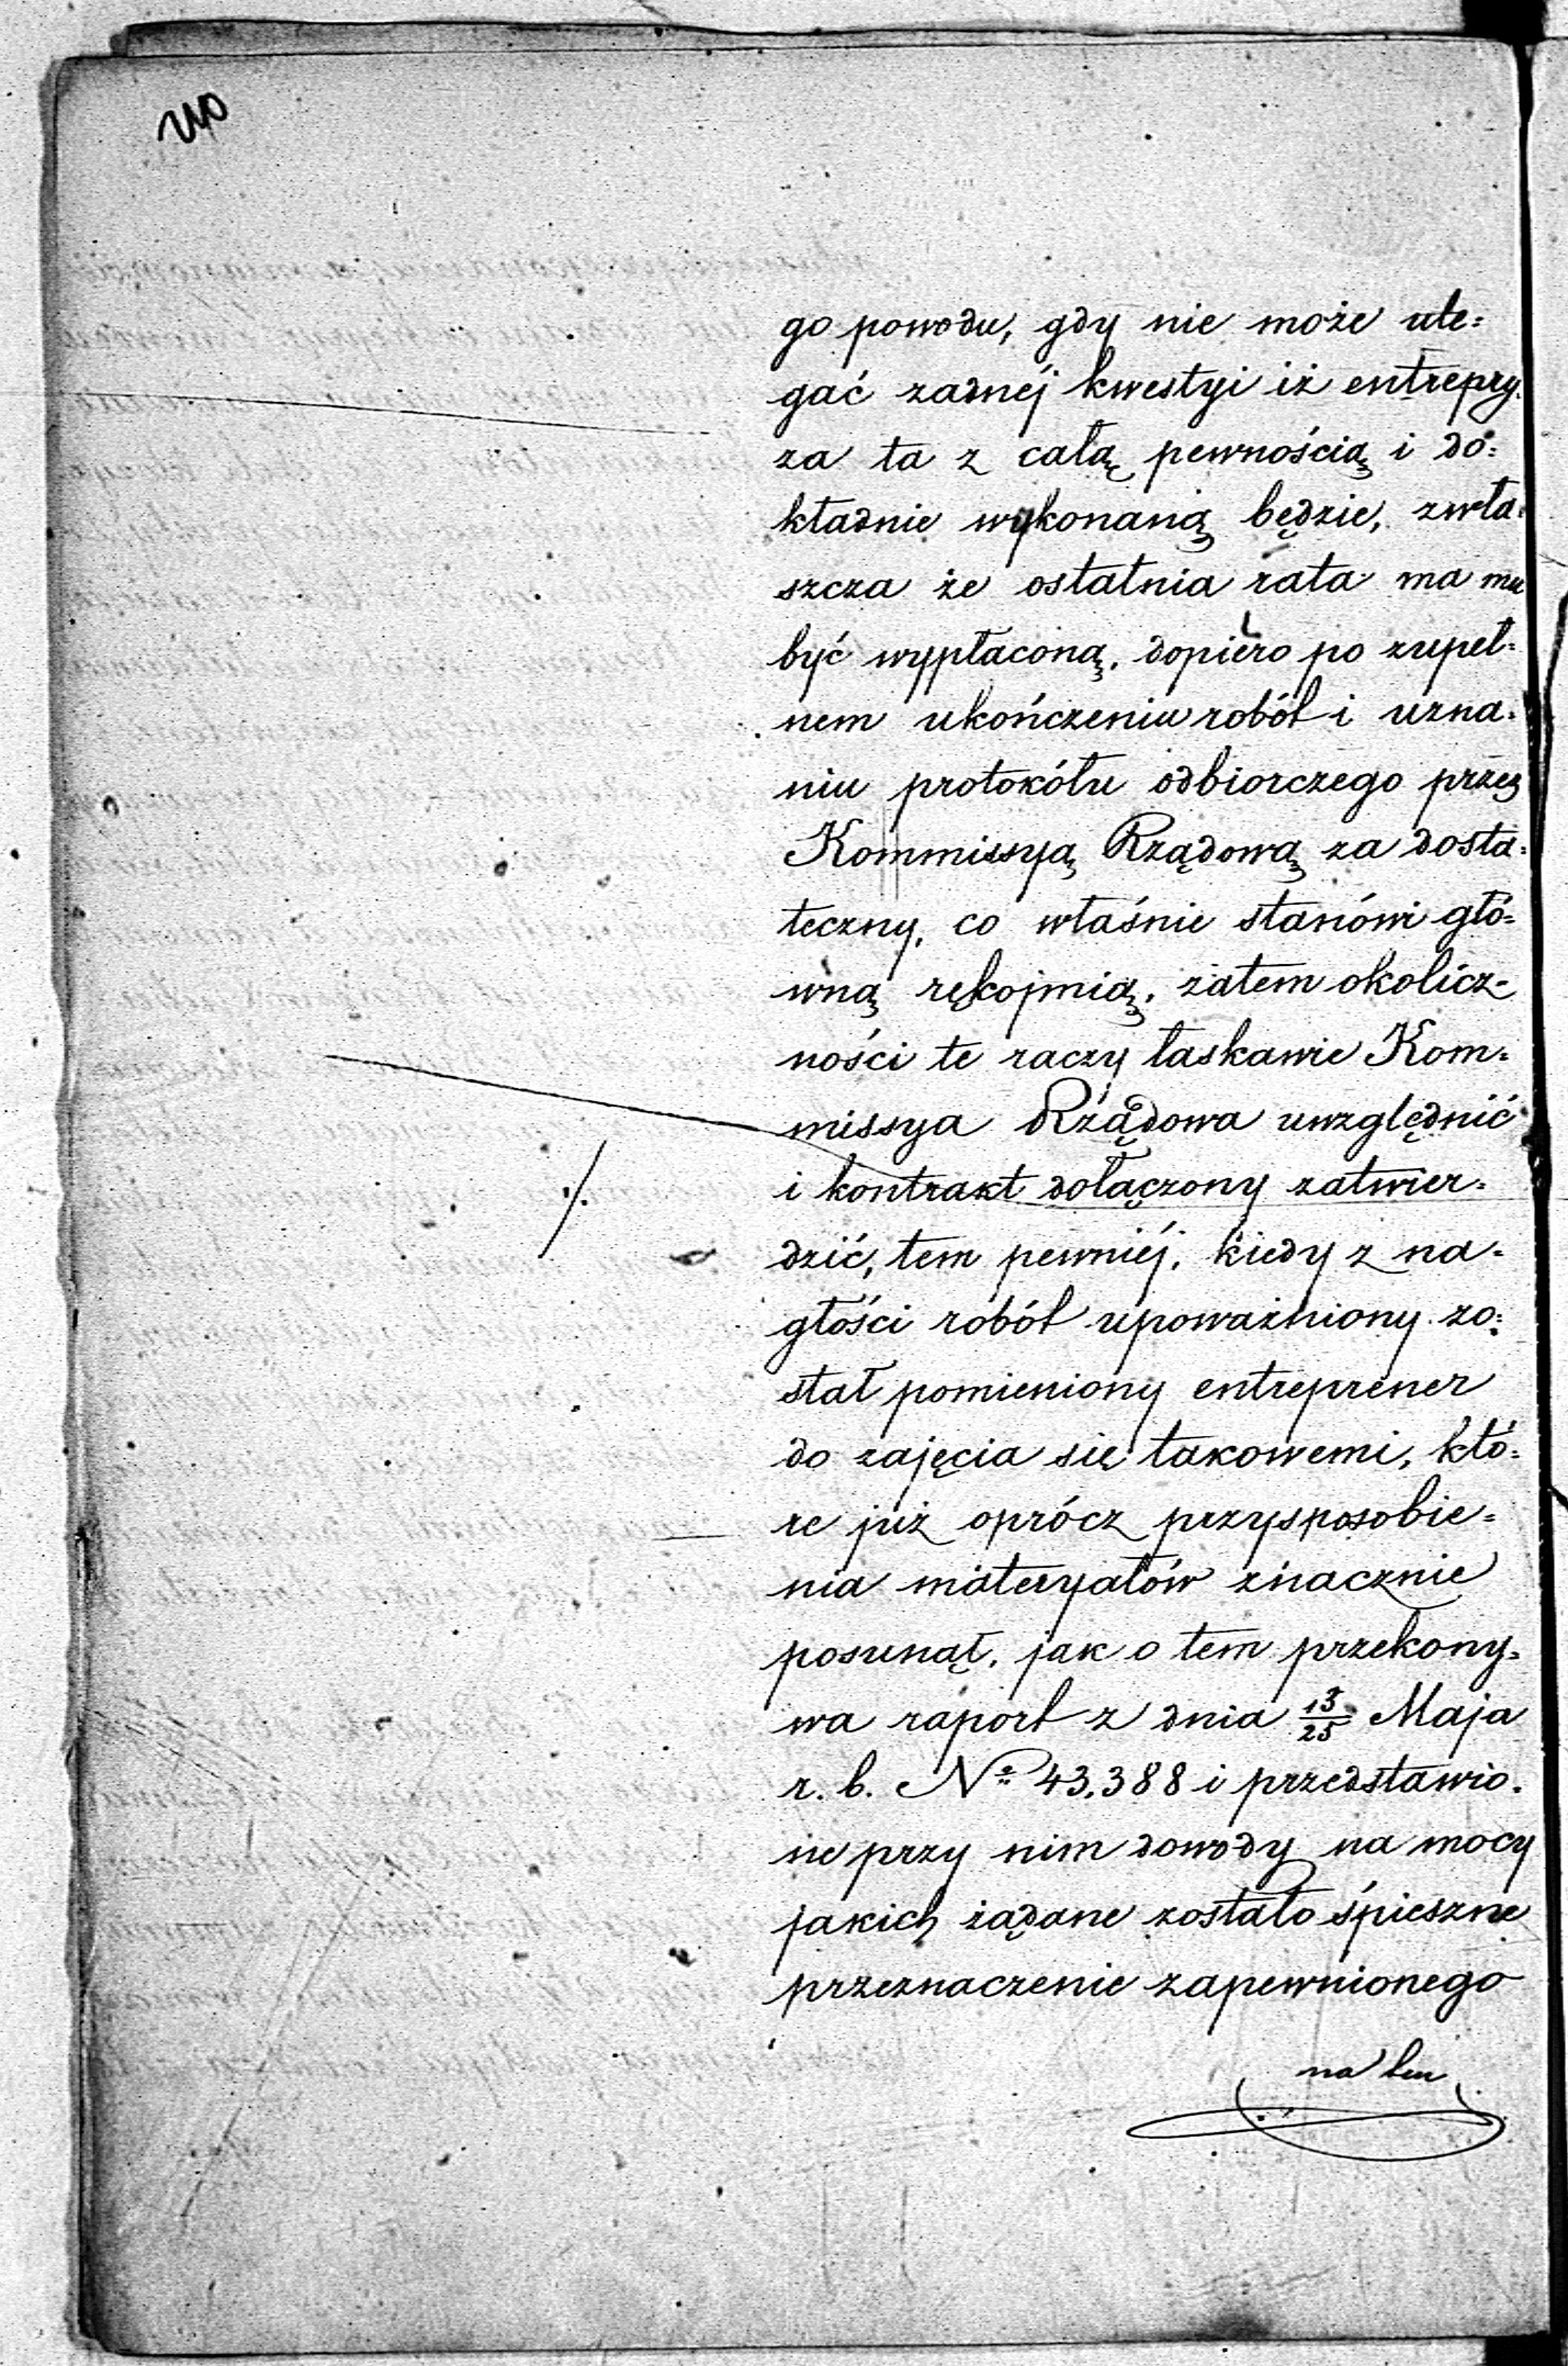 210
go powodu, gdy nie może ule=
gać żadnéj kwestyi iż entrepry=
za ta z całą pewnością i do=
kładnie wykonaną będzie, zwła=
szcza że ostatnia rata ma mu
być wypłaconą, dopiero po zupeł=
nem ukończeniu robót i uzna=
niu protokółu odbiorczego przez
Kommissyą Rządową za dosta=
teczny, co właśnie stanówi głó=
wną rękojmią, zatem okolicz=
ności te raczy łaskawie Kom=
missya Rządowa uwzględnić
i kontrakt dołączony zatwier=
·/.
dzić, tem pewniéj, kiedy z na=
głości robót upoważniony zo=
stał pomieniony entreprener
do zajęcia się takowemi, któ=
re już oprócz przysposobie=
nia materyałów znacznie
posunął, jak o tem przekony=
wa raport z dnia 13/25 Maja
r. b. Nº 43,388 i przedstawio=
ne przy nim dowody na mocy
jakich żądane zostało śpieszne
przeznaczenie zapewnionego
na ten